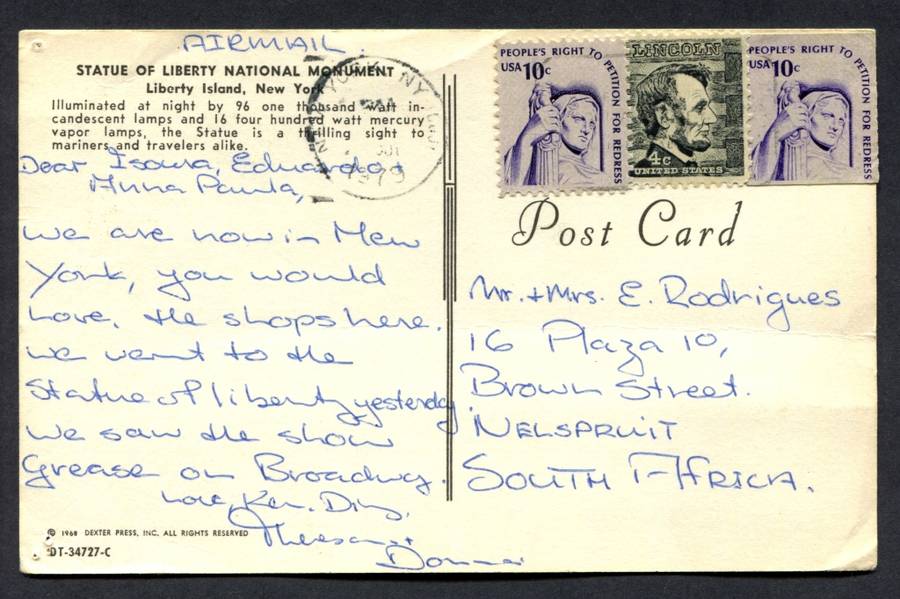 AIRMAIL.
STATUE OF LIBERTY NATIONAL MONUMENT
Liberty Island, New York
Illuminated at night by 96 one thousand watt in-
candescent lamps and 16 four hundred watt mercury
vapor lamps, the Statue is a thrilling sight to
mariners and travelers alike.
Dear Isaura, Eduardo +
Anna Paula,
We are now in New
York, you would
love. the shops here.
We went to the
Statue of liberty yesterday.
We saw the show
Grease on Broadway.
Love, Ken. Di
Theresa +
Donna
© 1968 DEXTER PRESS, INC. ALL RIGHTS RESERVED
DT-34727-C
NY
1979
PEOPLE'S RIGHT TO PETITION FOR REDRESS
USA 10c
LINCOLN
4c
UNITED STATES
PEOPLE'S RIGHT TO PETITION FOR REDRESS
USA 10c
Post Card
Mr. + Mrs. E. Rodrigues
16 Plaza 10,
Brown Street.
NELSPRUIT
SOUTH AFRICA.